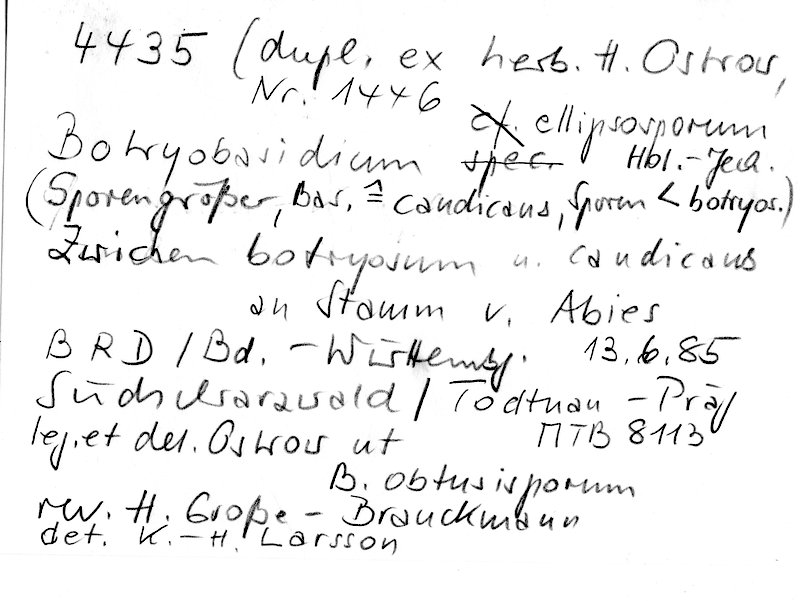 4435 (dupl. ex herb. H. Ostrow,
Nr. 1446
cf. ellipsosporum
Botryobasidium spec. Hbl.-Jech.
(Sporengrößer, Bas. ≙ candicans, Sporen < botryos.)
Zwischen botryosum u. candicans
an Stamm v. Abies
BRD / Bd. - Württembg. 13.6.85
Südschwarzwald / Todtnau - Präg
leg. et det. Ostrow ut MTB 8113
B. obtusisporum
rev. H. Große - Brauckmann
det. K.-H. Larsson